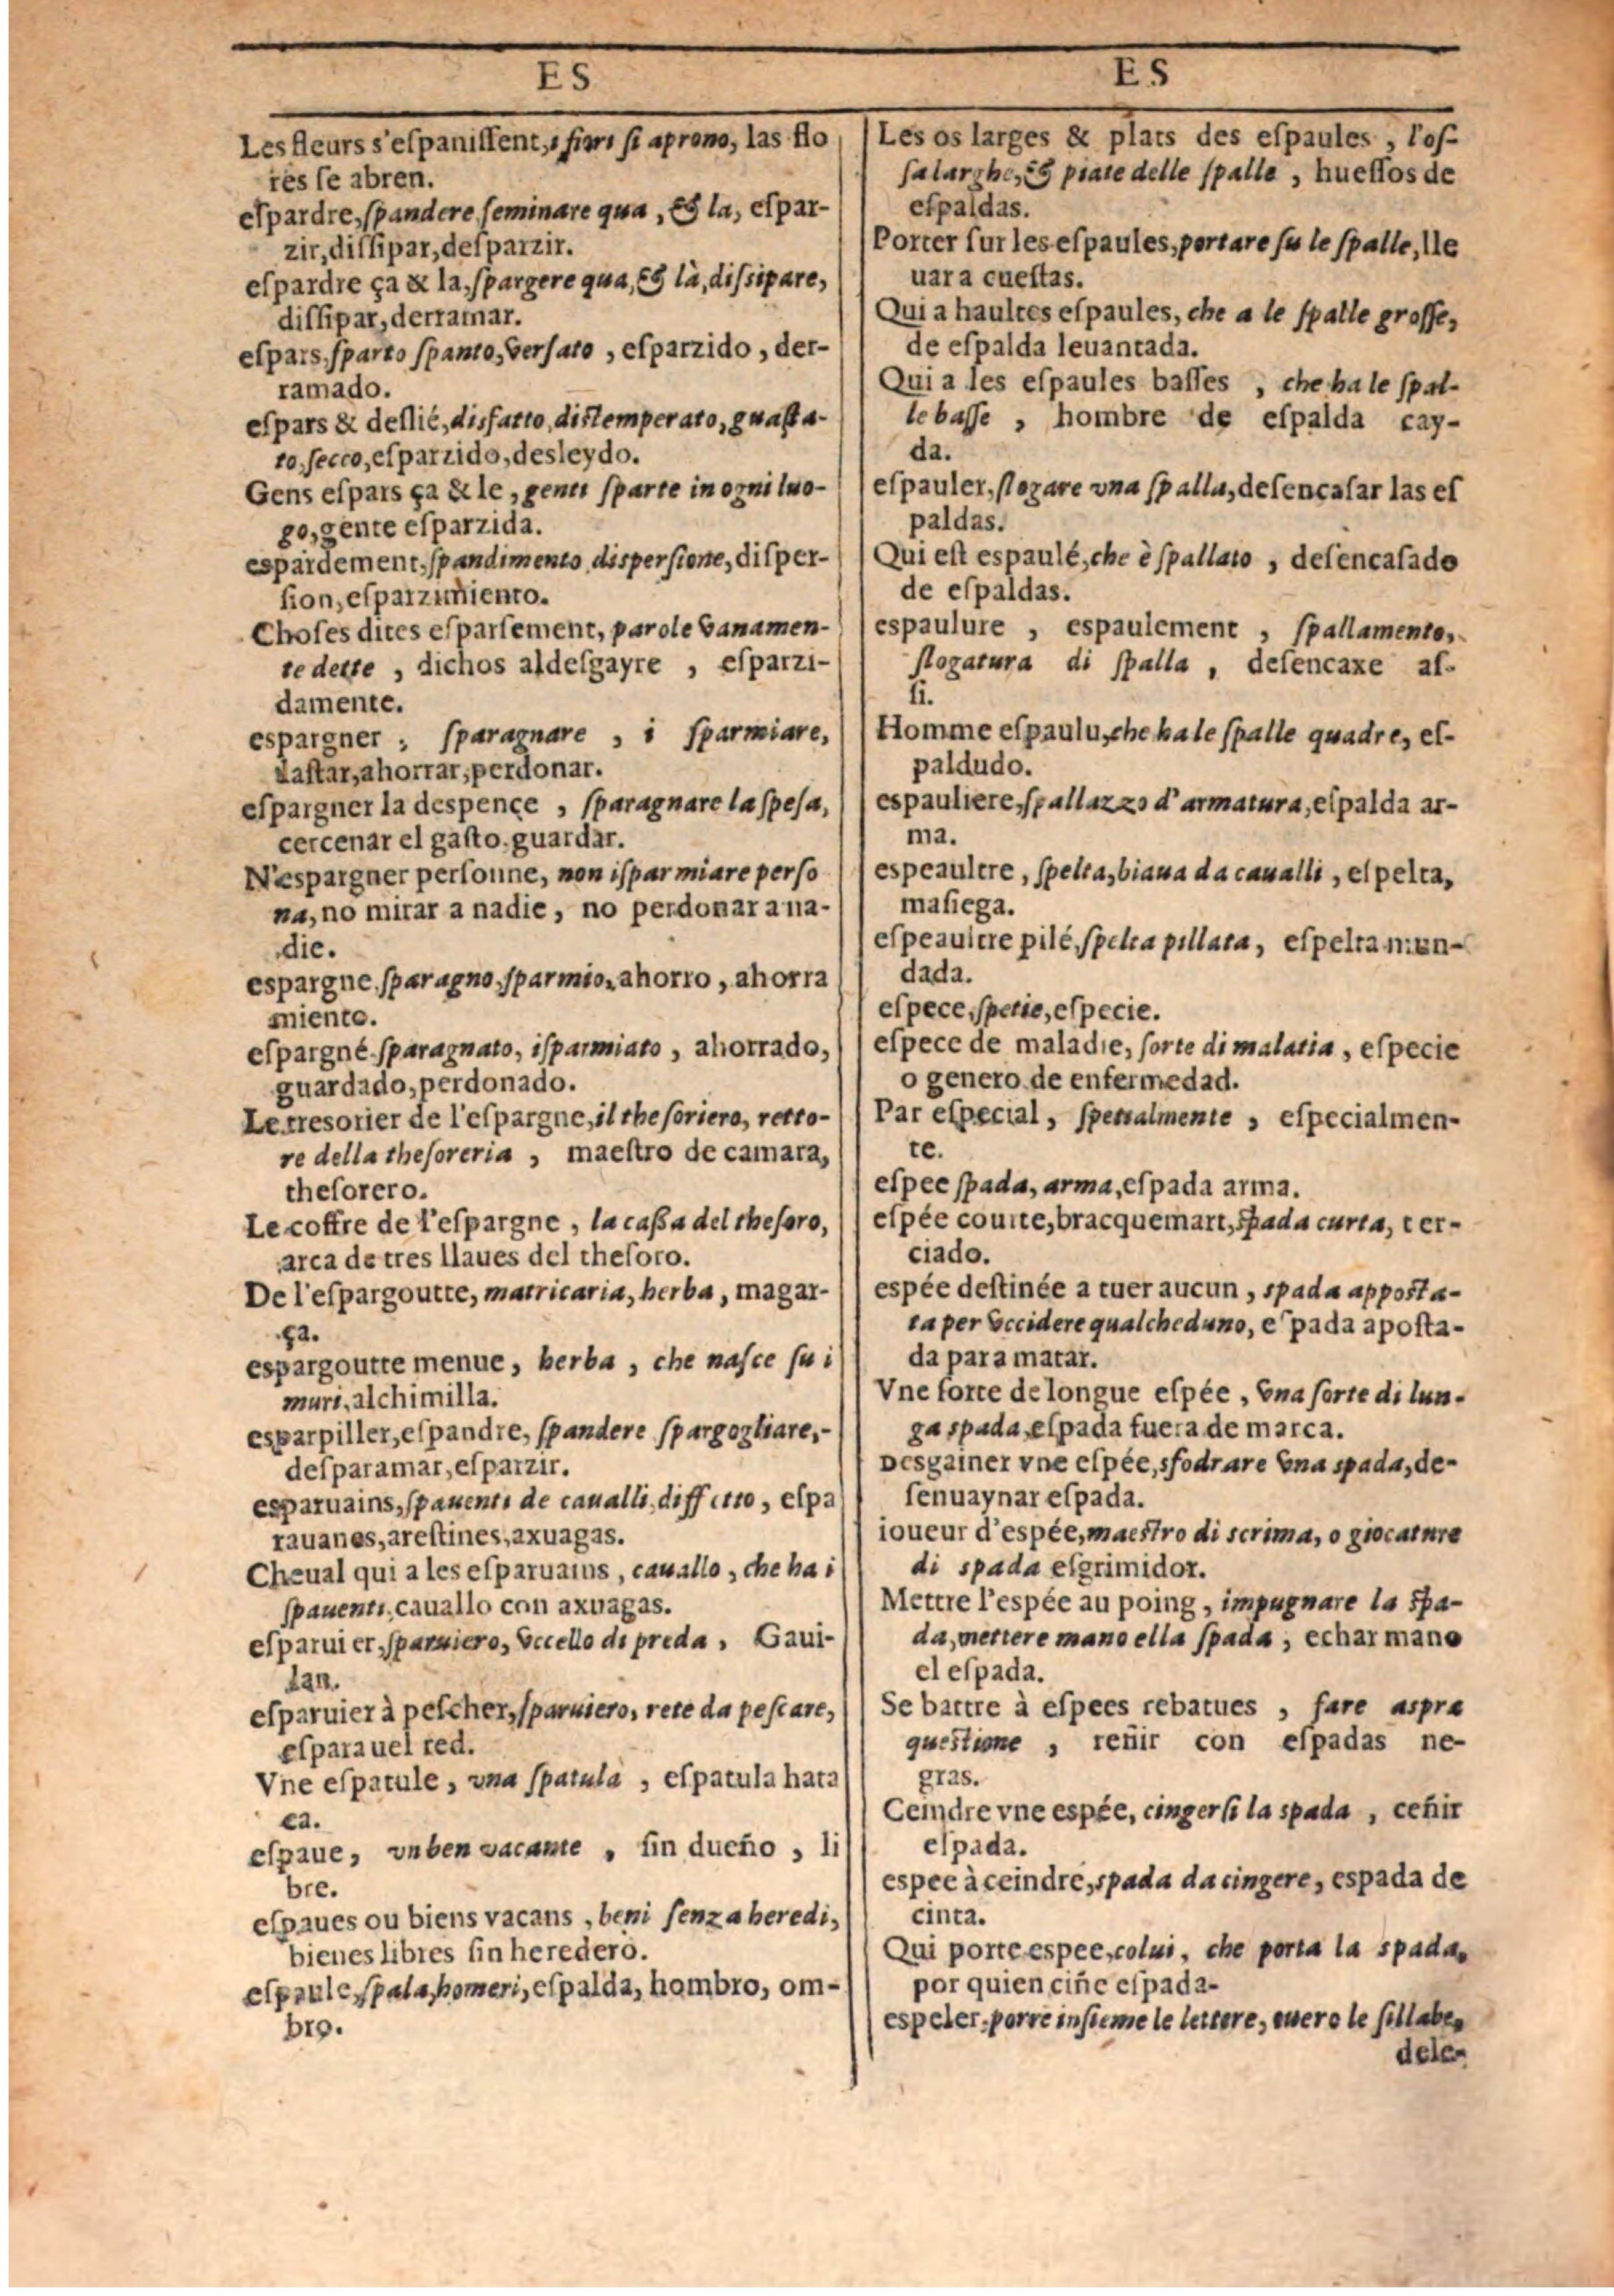 ES
Les fleurs s'eſpaniſſent, i fiori ſi aprono, las flo
res ſe abren.
eſpardre, ſpandere ſeminare qua, & la, eſpar-
zir, diſſipar, deſparzir.
eſpardre ça & la, ſpargere qua, & là, diſsipare,
diſſipar, derramar.
eſpars, ſparto ſpanto, verſato, eſparzido, der-
ramado.
eſpars & deſlié, disfatto, distemperato, guaſta-
to, ſecco, eſparzido, desleydo.
Gens eſpars ça & le, genti ſparte in ogni luo-
go, gente eſparzida.
espardement, ſpandimento disperſione, diſper-
ſion, eſparzimiento.
Choſes dites eſparſement, parole vanamen-
te dette, dichos aldeſgayre, eſparzi-
damente.
espargner, ſparagnare, i ſparmiare,
taſtar, ahorrar, perdonar.
eſpargner la despence, ſparagnare la ſpeſa,
cercenar el gaſto. guardar.
N'espargner perſonne, non iſparmiare perſo
na, no mirar a nadie, no perdonar a na-
die.
espargne, ſparagno, ſparmio, ahorro, ahorra
miento.
eſpargné ſparagnato, iſparmiato, ahorrado,
guardado, perdonado.
Le tresorier de l'eſpargne, il theſoriero, retto-
re della theſoreria, maeſtro de camara,
theſorero.
Le coffre de l'eſpargne, la caſſa del theſoro,
arca de tres llaues del theſoro.
De l'eſpargoutte, matricaria, herba, magar-
ça.
espargoutte menue, herba, che naſce ſu i
muri, alchimilla.
esparpiller, eſpandre, ſpandere ſpargogliare,-
deſparamar, eſparzir.
esparuains, ſpauenti de caualli, diffetto, eſpa
rauanes, areſtines, axuagas.
Cheual qui a les eſparuains, cauallo, che ha i
ſpauenti, cauallo con axuagas.
eſparuier, ſparuiero, vccello di preda, Gaui-
lan.
eſparuier à peſcher, ſparuiero, rete da peſcare,
eſparauel red.
Vne eſpatule, vna ſpatula, eſpatula hata
ca.
eſpaue, vn ben vacante, ſin dueño, li
bre.
eſpaues ou biens vacans, beni ſenza heredi,
bienes libres ſin heredero.
eſpaule, ſpala, homeri, eſpalda, hombro, om-
bro.
ES
Les os larges & plats des eſpaules, l'oſ-
ſa larghe, & piate delle ſpalle, hueſſos de
eſpaldas.
Porter ſur les eſpaules, portare ſu le ſpalle, lle
uar a cueſtas.
Qui a haultes eſpaules, che a le ſpalle groſſe,
de eſpalda leuantada.
Qui a les eſpaules baſſes, che ha le ſpal-
le baſſe, hombre de eſpalda cay-
da.
eſpauler, ſlogare vna ſpalla, deſencaſar las eſ
paldas.
Qui eſt espaulé, che è ſpallato, deſencaſado
de eſpaldas.
espaulure, espaulement, ſpallamento,
ſlogatura di ſpalla, deſencaxe aſ-
ſi.
Homme eſpaulu, che ha le ſpalle quadre, eſ-
paldudo.
espauliere, ſpallazzo d'armatura, eſpalda ar-
ma.
espeaultre, ſpelta, biaua da caualli, eſpelta,
maſiega.
eſpeaultre pilé, ſpelta pillata, eſpelta mun-
dada.
eſpece, ſpetie, eſpecie.
eſpece de maladie, ſorte di malatia, eſpecie
o genero de enfermedad.
Par eſpecial, ſpetialmente, eſpecialmen-
te.
eſpee ſpada, arma, eſpada arma.
eſpée courte, bracquemart, ſpada curta, ter-
ciado.
espée deſtinée a tuer aucun, spada appoſta-
ta per vccidere qualcheduno, eſpada apoſta-
da para matar.
Vne ſorte de longue eſpée, vna ſorte di lun-
ga spada, eſpada fuera de marca.
Desgainer vne eſpée, sfodrare vna spada, de-
ſenuaynar eſpada.
ioueur d'espée, maeſtro di scrima, o giocatore
di spada eſgrimidor.
Mettre l'espée au poing, impugnare la ſpa-
da, mettere mano ella ſpada, echar mano
el eſpada.
Se battre à eſpees rebatues, fare aspra
queſtione, reñir con eſpadas ne-
gras.
Ceindre vne espée, cingerſi la spada, ceñir
eſpada.
espee à ceindre, spada da cingere, espada de
cinta.
Qui porte espee, colui, che porta la spada,
por quien ciñe eſpada-
espeler, porre inſieme le lettere, ouero le ſillabe,
dele-